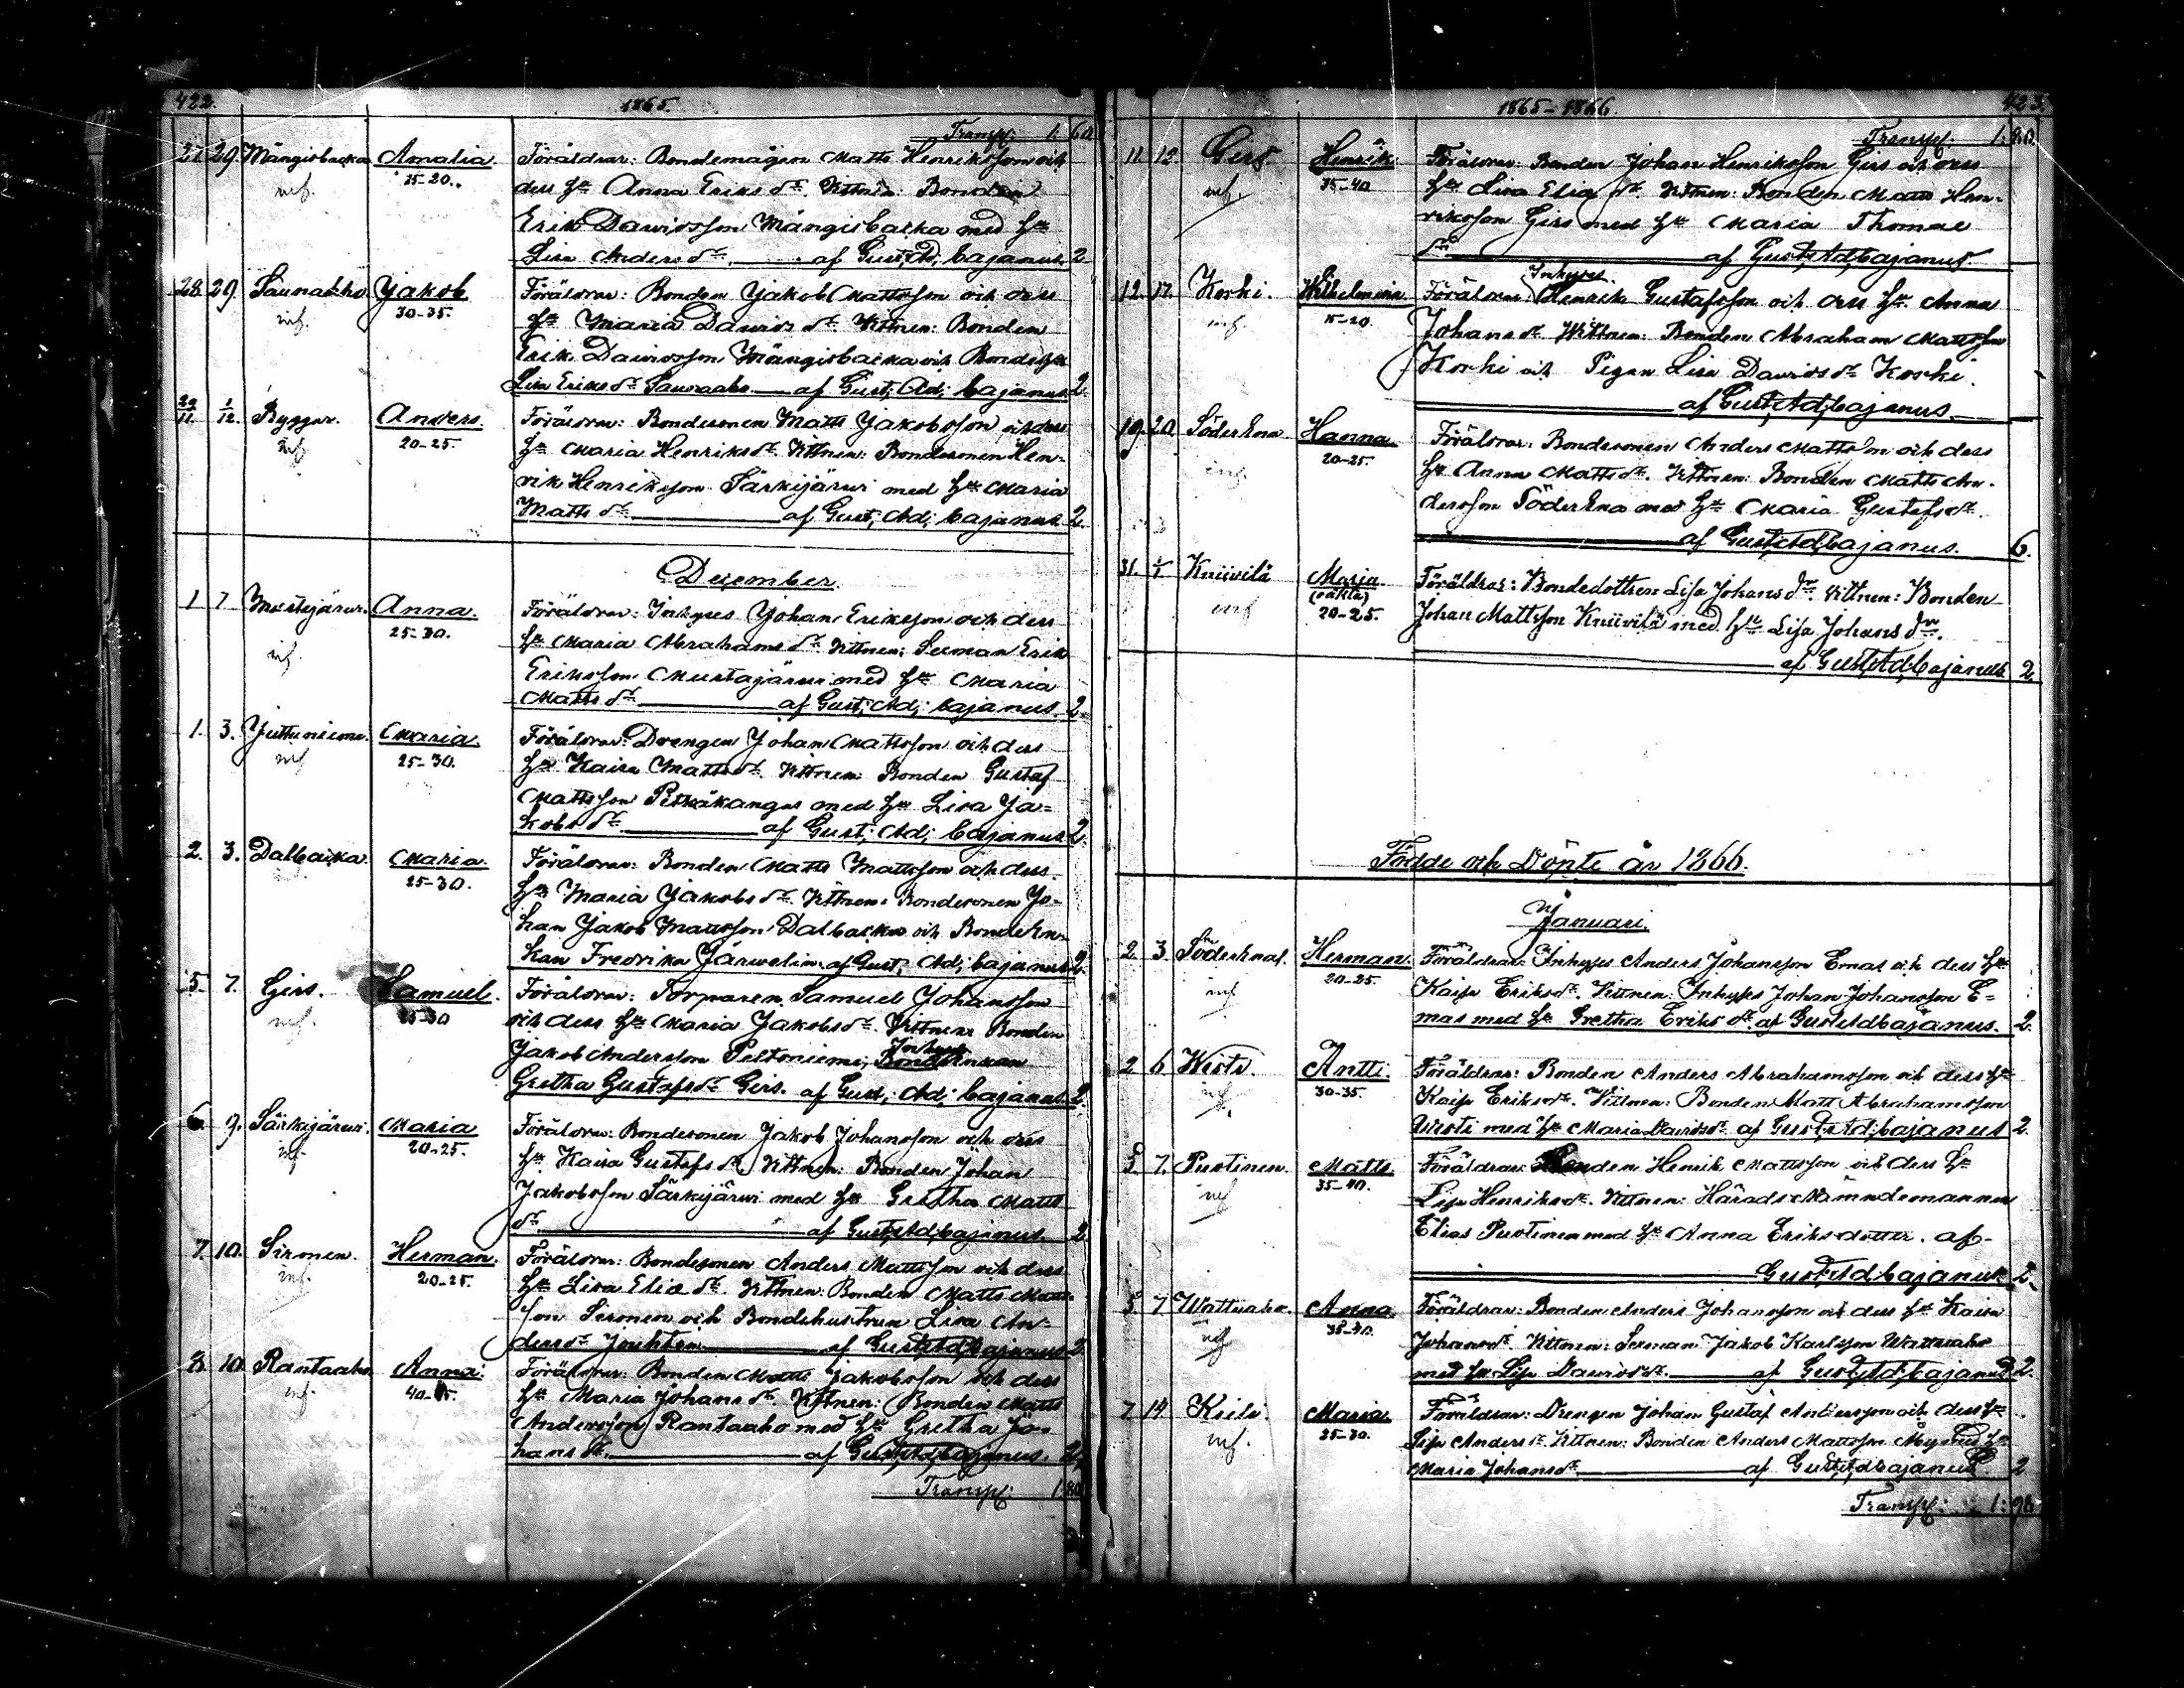 422.
1865.
Transp: 1. 60
27. 29. Mängisbacka Amalia. Föräldrar: Bondemågen Matts Henriksson och
inf. 15-20. dess hu Anna Eriks dr. Vittnen: Bonden
Erik Davidsson Mängisbacka med hu
Lisa Anders dr. af Gust; Ad; Cajanus. 2
28. 29. Saunaaho Jakob Föräldrar: Bonden Jakob Mattsson och dess
inf. 30-35. hu Maria Davids dr. Vittnen: Bonden
Erik Davidsson Mängisbacka och Bondehu
Lisa Eriks dr Saunaaho af Gust; Ad; Cajanus. 2
29/11 1/12. Byggar. Anders. Föräldrar: Bondesonen Matts Jakobsson och dess
inf. 20-25. hu Maria Henriks dr. Vittnen: Bondesonen Hen-
rik Henriksson Särkijärvi med hu Maria
Matts dr af Gust; Ad; Cajanus. 2
December.
1 7 Mustajärvi. Anna. Föräldrar: Inhyses Johan Eriksson och dess
inf. 25-30. hu Maria Abrahams dr. Vittnen: Seeman Erik
Eriksson Mustajärvi med hu Maria
Matts dr af Gust; Ad; Cajanus. 2
1. 3. Juttuniemi. Maria. Föräldrar: Drengen Johan Mattsson och dess
inf 25-30. hu Kaisa Matts dr. Vittnen: Bonden Gustaf
Mattsson Pitkäkangas med hu Lisa Ja-
kobs dr af Gust; Ad; Cajanus. 2.
2. 3. Dalbacka. Maria. Föräldrar: Bonden Matts Mattsson och dess
25-30. hu Maria Jakobs dr. Vittnen: Bondesonen Jo-
han Jakob Mattsson Dalbacka och Bondeen-
kan Fredrika Järvelin. af Gust; Ad; Cajanus. 2.
5. 7. Girs. Samuel. Föräldrar: Torparen Samuel Johansson
inf. 25-30 och dess hu Maria Jakobs dr. Vittnen: Bonden
Jakob Andersson Peltoniemi, Inhyses
Gretha Gustafs dr Girs. af Gust; Ad; Cajanus. 2.
6. 9. Särkijärvi. Maria Föräldrar: Bondesonen Jakob Johansson och dess
inf. 20-25. hu Kaisa Gustafs dr. Vittnen: Bonden Johan
Jakobsson Särkijärvi med hu Gretha Matts
dr. af Gust; Ad; Cajanus. 2
7. 10. Sironen. Herman. Föräldrar: Bondesonen Anders Mattsson och dess
inf. 20-25. hu Lisa Elia dr. Vittnen: Bonden Matts Matts-
son Sironen och Bondehustrun Lisa An-
ders dr af Gust; Ad; Cajanus. 2
8. 10. Rantaaho Anna. Föräldrar: Bonden Matts Jakobsson och dess
inf. hu Maria Johans dr. Vittnen: Bonden Matts
Andersson Rantaaho med hu Gretha Jo-
hans dr. af Gust; Ad; Cajanus. 2.
Transp: 1. 80
1865-1866.
423.
Transp: 1. 80.
11. 12. Girs Henrik. Föräldrar: Bonden Johan Henriksson Girs och dess
inf. 35-40 hu Lisa Elia dr. Vittnen: Bonden Matts Hen-
riksson Girs med hu Maria Thomae
dr. af Gust; Ad; Cajanus.
12. 17. Korhi. Wilhelmina. Föräldrar: Inhyses Henrik Gustafsson och dess hu Anna
inf. 15-20. Johans dr. Vittnen: Bonden Abraham Mattsson
Korhi och Pigan Lisa Davids dr Korhi.
af Gust; Ad; Cajanus.
19. 20. Hanna. Föräldrar: Bondesonen Anders Mattsson och dess
inf. 20-25. hu Anna Matts dr. Vittnen: Bonden Matts An-
dersson med hu Maria Gustafs dr.
af Gust; Ad; Cajanus. 6.
31. 1/1 Kniivilä Maria Föräldrar: Bondedottren Lisa Johans dr. Vittnen: Bonden
inf (oäkta) Johan Mattsson Kniivilä med hu Lisa Johans dr.
20-25.
af Gust; Ad; Cajanus 2
Födde och Döpte år 1866.
Januari.
2 3 Herman. Föräldrar: Inhyses Anders Johansson Emas och dess hu
inf 20-25. Kaisa Eriks dr. Vittnen: Inhyses Johan Johansson E-
mas med hu Gretha Eriks dr. af Gust; Ad; Cajanus. 2.
2 6 Wisti. Antti. Föräldrar: Bonden Anders Abrahamsson och dess hu
inf. 30-35. Kaisa Eriks dr. Vittnen: Bonden Matts Abrahamsson
Wisti med hu Maria Davids dr. af Gust; Ad; Cajanus 2.
5 7. Puotinen. Matts. Föräldrar: Bonden Henrik Mattsson och dess hu
inf 35-40. Lisa Henriks dr. Vittnen: Härads Nämndemannen
Elias Puotinen med hu Anna Eriksdotter. af
Gust; Ad; Cajanus. 2.
5. 7 Wattuaho. Anna. Föräldrar: Bonden Anders Johansson och dess hu Kaisa
inf 35-40. Johans dr. Vittnen: Seeman Jakob Karlsson Wattuaho
med hu Lisa Davids dr. af Gust; Ad; Cajanus 2.
7. 14 Maria. Föräldrar: Drengen Johan Gustaf Andersson och dess hu
inf. 25-30. Lisa Anders dr. Vittnen: Bonden Anders Mattsson
Maria Johans dr. af Gust; Ad; Cajanus. 2
Transp: 1: 98.